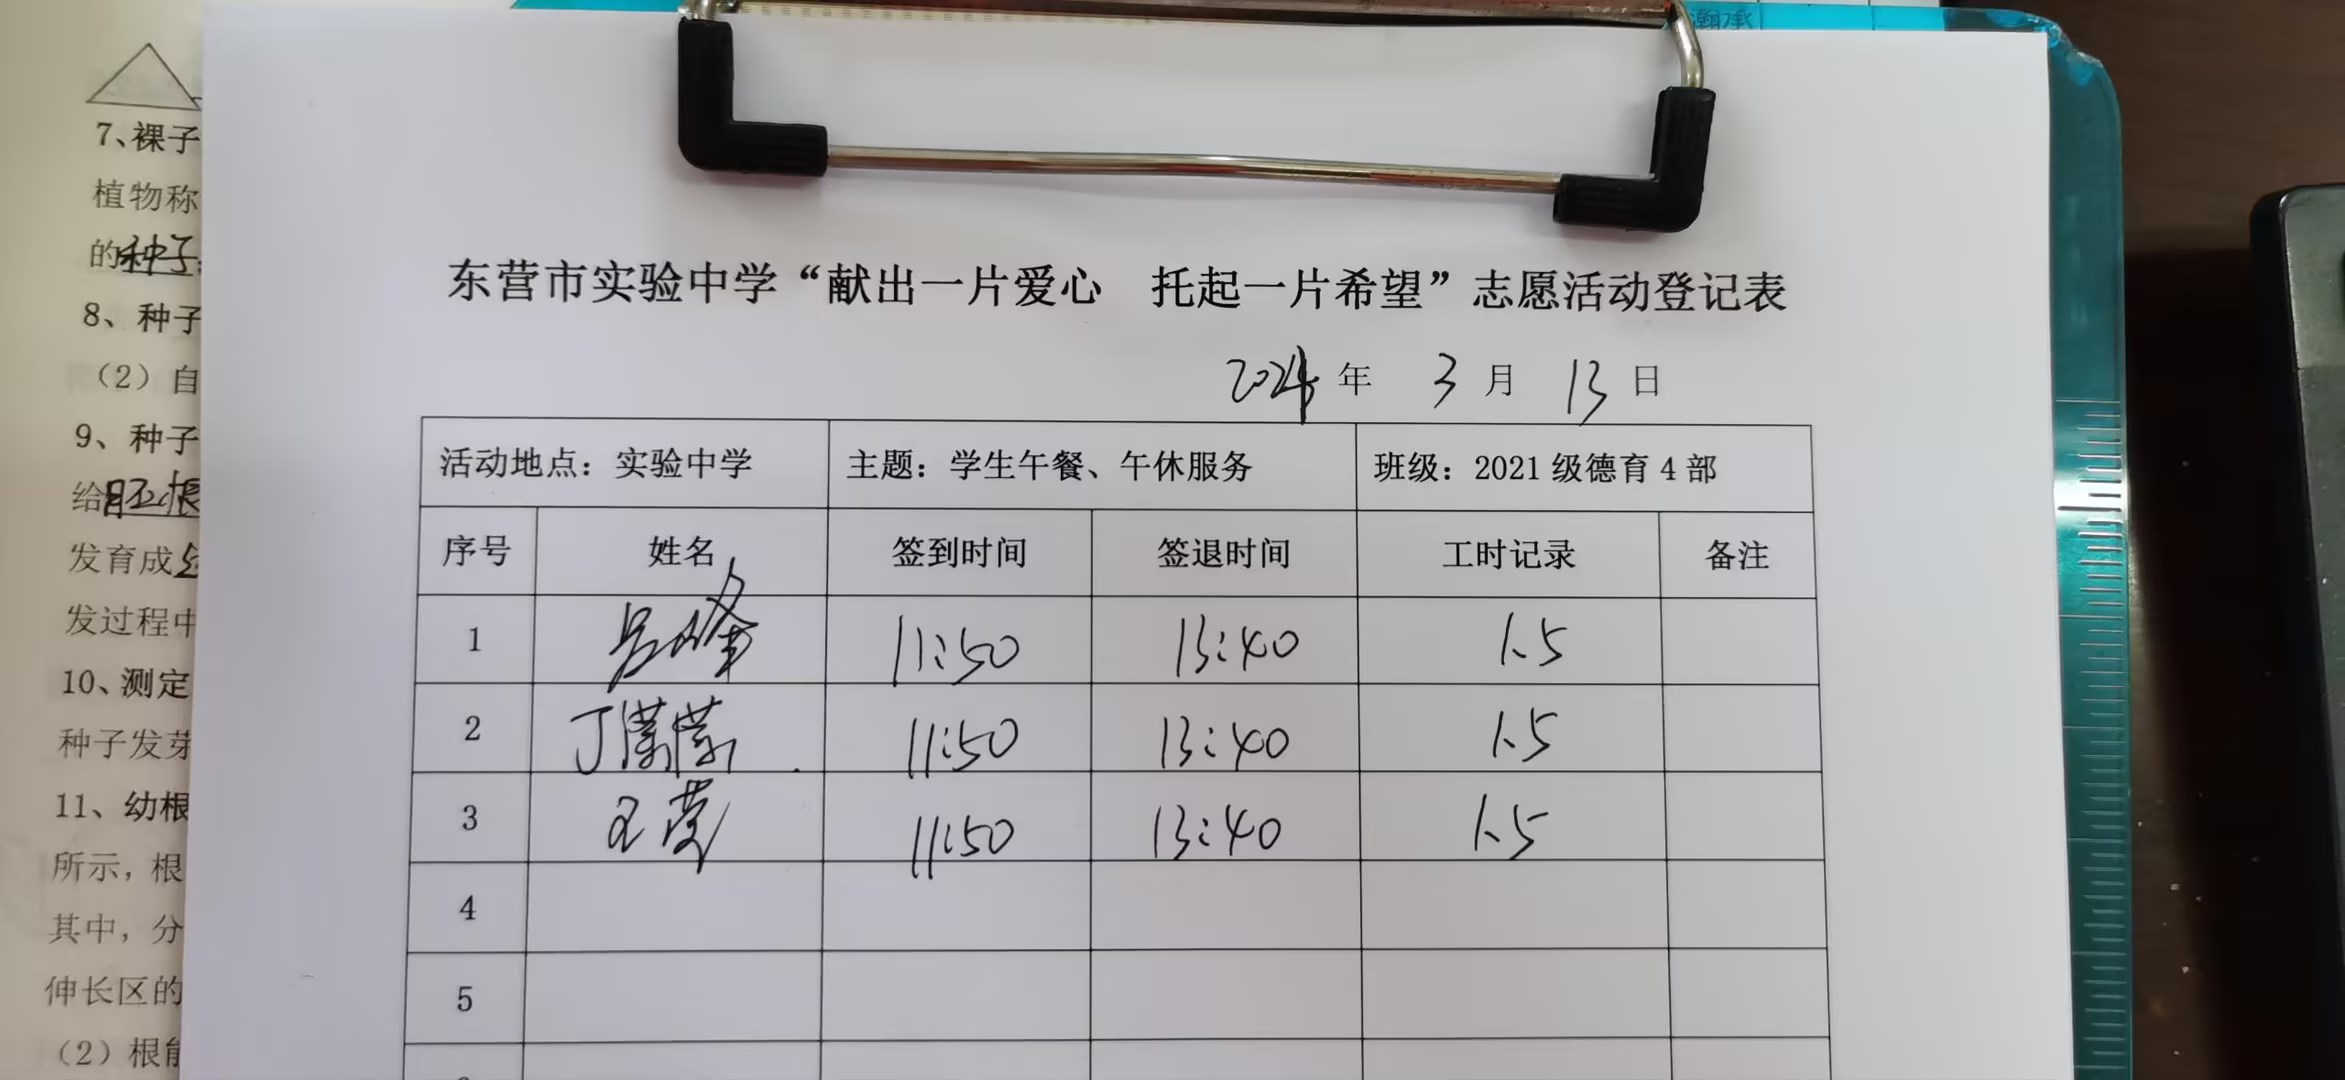 瀚承
7、裸子
植物称
的种子
8、种子
(2)自
9、种子
给胚根
发育成
发过程中
10、测定
种子发芽
11、幼根
所示，根
其中，分
伸长区的
(2)根能
东营市实验中学“献出一片爱心 托起一片希望”志愿活动登记表
2024年 3月 13日
活动地点：实验中学 主题：学生午餐、午休服务 班级：2021级德育4部
序号 姓名 签到时间 签退时间 工时记录 备注
1 11:50 13:40 1.5
2 丁潇潇 11:50 13:40 1.5
3 王莹 11:50 13:40 1.5
4
5